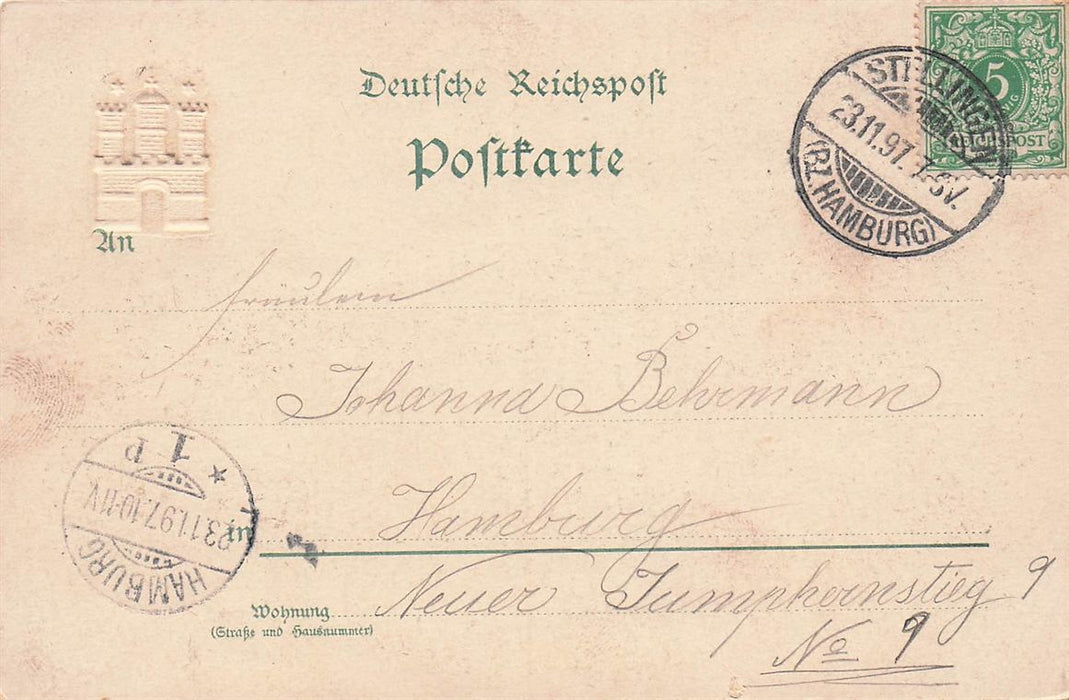 Deutsche Reichspost
Postkarte
5
REICHSPOST
STELLINGEN
23.11.97.7-8V.
(BZ. HAMBURG)
An
Fräulein
Johanna Behrmann
in Hamburg
Wohnung
(Straße und Hausnummer)
Neuer Jumphernstieg 9
No 9
HAMBURG
23.11.97.10-11V.
* 1 P